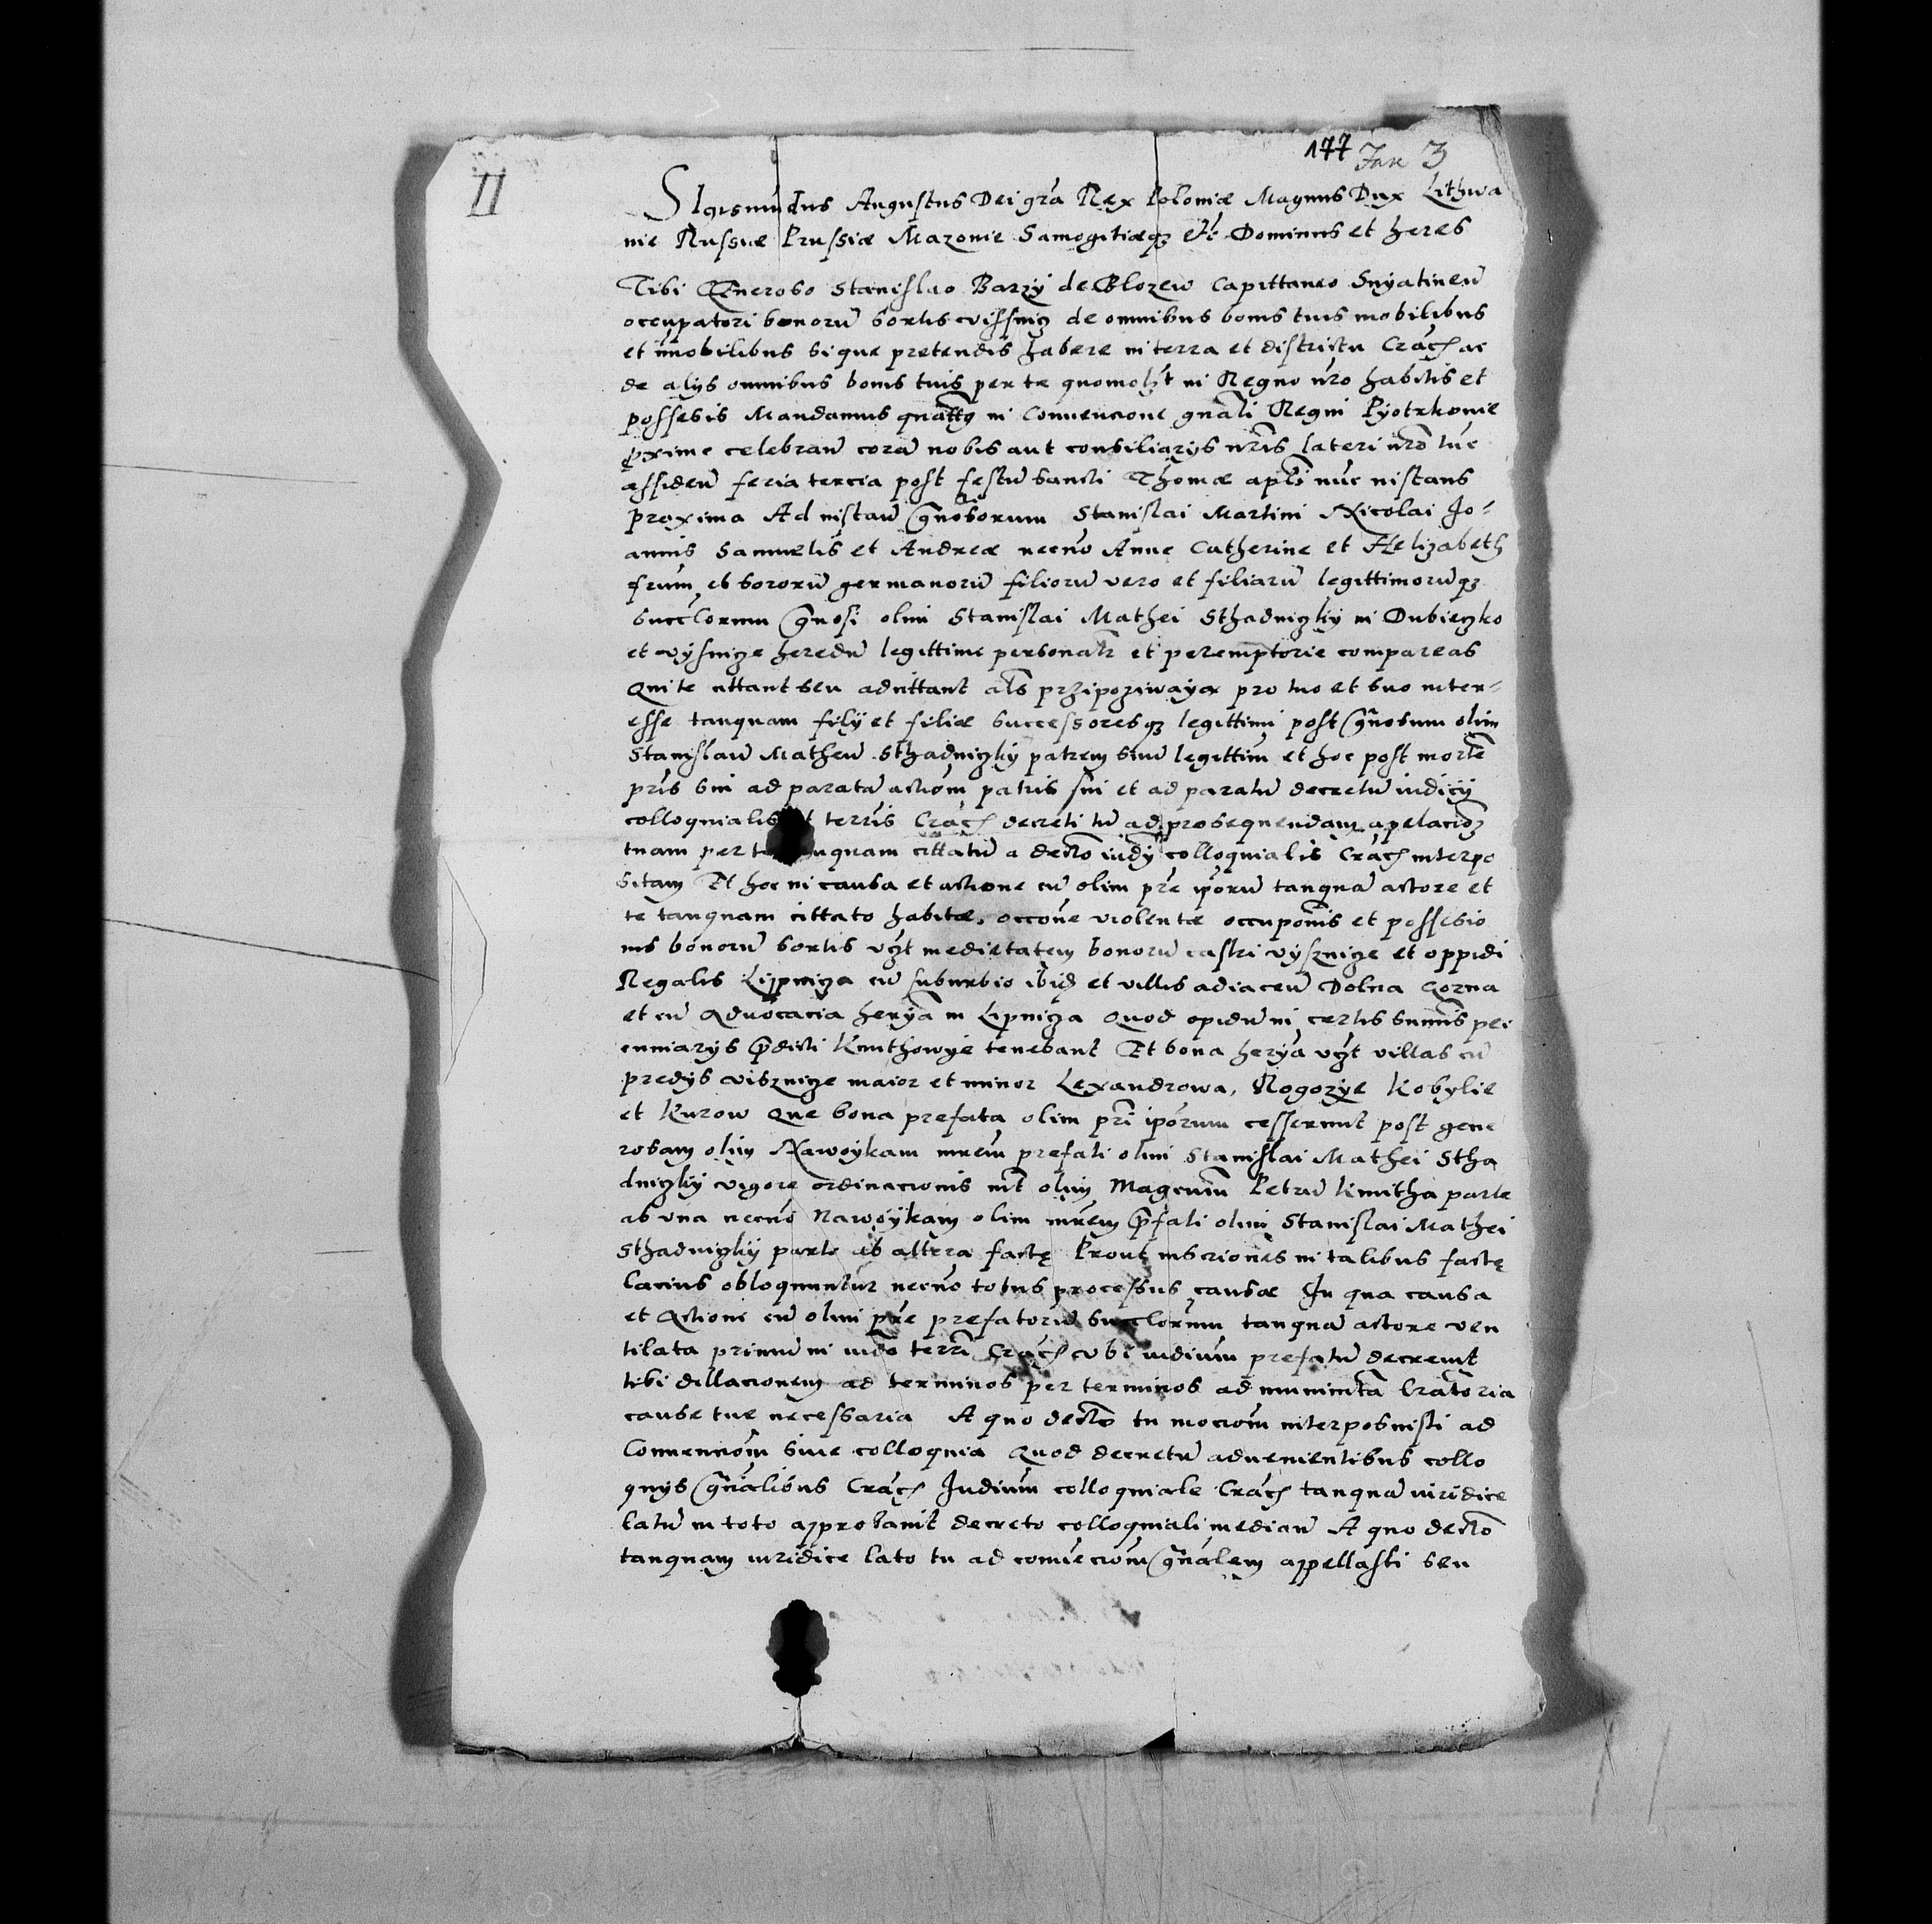 177 Jan 3
II
Sigismundus Augustus Dei gra Rex Poloniæ Magnus Dux Lithwa
nie Russiæ Prussiæ Mazovie Samogitiæqz etc Dominus et heres
Tibi Gneroso Stanislao Barzy de Blozew Capittaneo Snyatineñ
occupatori bonorũ sortis Vissnicz de omnibus bonis tuis mobilibus
et imobilibus si que pretendis habere in terra et districtu Cracħ ac
de alys omnibus bonis tuis per te quomolẓt in Regno nro habitis et
possesis Mandamus qnattz in Convencione gnali Regni Pyotrkovie
pxime celebrañ corã nobis aut consiliarys nris lateri nro tũc
assideñ feria tercia post festũ Sancti Thomæ apli nũc instans
proxima Ad instañ Gnosorum Stanislai Martini Nicolai Jo-
annis Samuelis et Andreæ necnõ Anne Catherine et Helizabeth
frum et sororũ germanorũ filiorũ vero et filiarũ legittimorũqz
succlorum Gnosi olim Stanislai Mathei Sthadniczky in Dubieczko
et Vysnicze heredũ legittime personalr et peremptorie compareas
Qui te cittant seu adcittant als przipoziwaya pro tuo et suo inter-
esse tanquam filij et filiæ successoresqz legittimi post Gnosum olim
Stanislaũ Matheũ Sthadniczky patrem suũ legittim et hoc post mortẽ
pris sui ad paratã actiom patris sui et ad paratũ decretũ iudicij
colloquialis t terris Cracħ decreti tũ ad prosequendam apelacioz
tuam per te nquam cittatũ a decto iudy colloquialis Cracħ interpo
sitam Et hoc in causa et actione cũ olim pre iporũ tanquã actore et
te tanquam cittato habitæ, occone violentæ occuponis et possesio
nis bonorũ sortis vzt medietatem bonorũ castri Vysznicze et oppidi
Regalis Lypnicza cũ suburbio ibid et villis adiaceñ Dolna Gorna
et cũ Advocacia herya in Lipnicza Quod opidũ in certis summis pec
cuniarys pdicti Kmithowye tenebant Et bona herya vzt villas cũ
predys Visznicze maior et minor Lexandrowa, Rogozye Kobylie
et Kurow Que bona prefata olim pri iporum cesserunt post gene
rosam olim Nawoykam mrem prefati olim Stanislai Mathei Stha
dniczky vigore ordinacionis int olim Magcum Petrũ Kmitha parte
ab una necnõ Nawoykam olim mrem pfati olim Stanislai Mathei
Sthadniczky parte ab altera factę Prout inscriones in talibus factę
lacius obloquuntur necnõ totus processus causæ In qua causa
et Actione cũ olim pre prefatorũ succlorum tanquã actore ven
tilata primũ in iudo terri Cracħ ubi iudicium prefatũ decrevit
tibi dillacionem ad terminos per terminos ad munimta lratoria
cause tue necessaria A quo decto tu mociom interposuisti ad
Convenciom sive colloquia Quod decretũ advenientibus collo
quys Gnalibus Cracħ Judicium colloquiale Cracħ tanquã iuridice
latũ in toto approbavit decreto colloquiali mediañ A quo decto
tanquam iuridice lato tu ad convenciom Gnalem appellasti seu